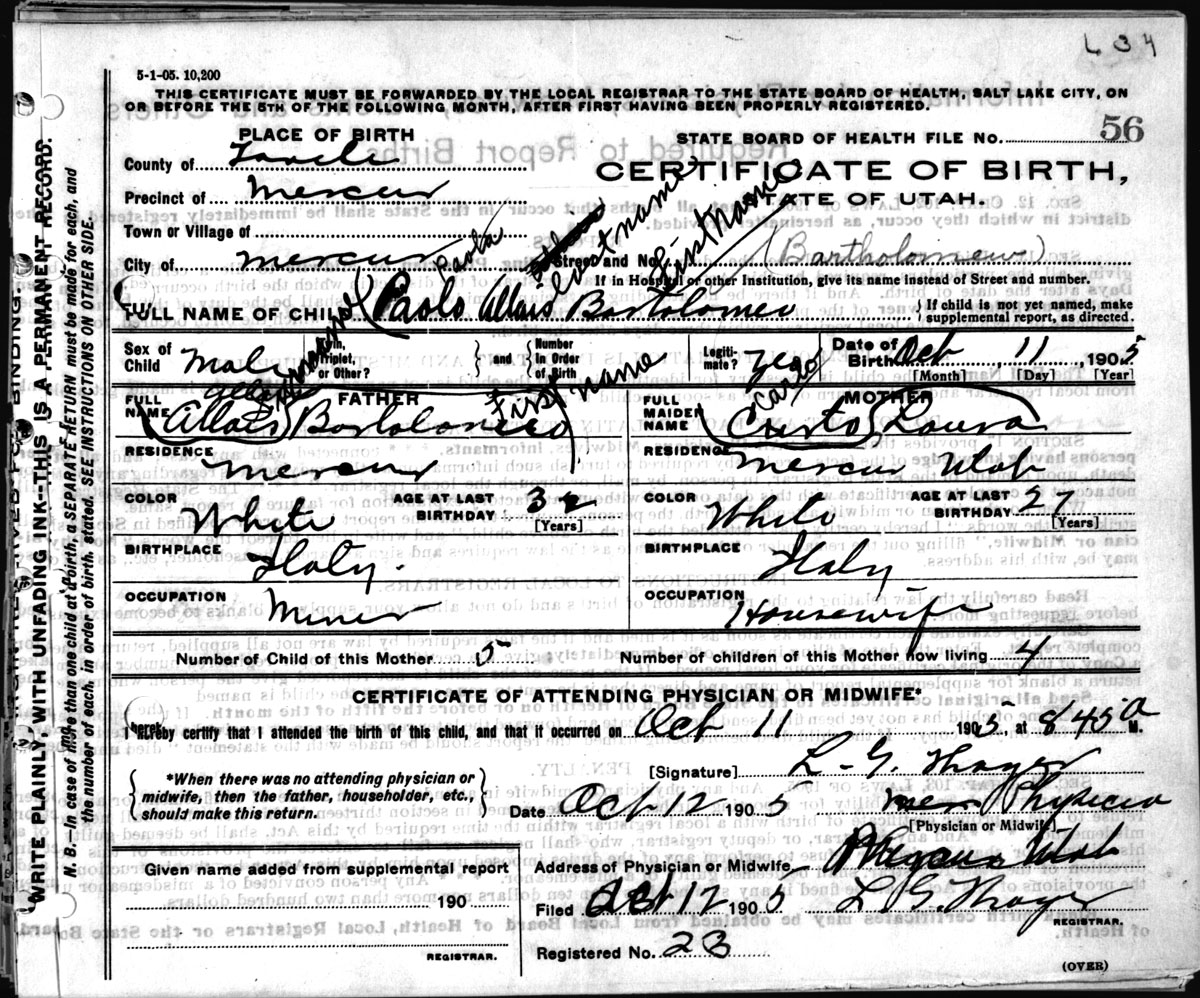 634
5-1-05. 10,200
THIS CERTIFICATE MUST BE FORWARDED BY THE LOCAL REGISTRAR TO THE STATE BOARD OF HEALTH, SALT LAKE CITY, ON
OR BEFORE THE 5TH OF THE FOLLOWING MONTH, AFTER FIRST HAVING BEEN PROPERLY REGISTERED.
PLACE OF BIRTH
STATE BOARD OF HEALTH FILE No. 56
County of Tooele
CERTIFICATE OF BIRTH,
Precinct of Mercur
STATE OF UTAH.
Town or Village of
City of Mercur
Street and No.
(Bartholomew)
If in Hospital or other Institution, give its name instead of Street and number.
Paola
last name
First name
FULL NAME OF CHILD Paolo Allais Bartolomeo
{If child is not yet named, make
supplemental report, as directed.
Sex of
Child Male
Twin,
Triplet,
or Other?
{and}
Number
In Order
of Birth
Legiti-
mate? yes
Date of
Birth Oct 11, 1905
[Month] [Day] [Year]
First name
FATHER
FULL
NAME Allais Bartolomeo
MOTHER
FULL
MAIDEN
NAME Cristo Laura
RESIDENCE
Mercur
RESIDENCE
Mercur Utah
COLOR
White
AGE AT LAST
BIRTHDAY 32
[Years]
COLOR
White
AGE AT LAST
BIRTHDAY 27
[Years]
BIRTHPLACE
Italy.
BIRTHPLACE
Italy
OCCUPATION
Miner
OCCUPATION
Housewife
Number of Child of this Mother 5
Number of children of this Mother now living 4
CERTIFICATE OF ATTENDING PHYSICIAN OR MIDWIFE*
I hereby certify that I attended the birth of this child, and that it occurred on Oct 11 1905, at 8 45 a M.
{*When there was no attending physician or
midwife, then the father, householder, etc.,
should make this return.}
[Signature] L. G. Thayer
Date Oct 12 1905
Physician
[Physician or Midwife]
Given name added from supplemental report
190
REGISTRAR.
Address of Physician or Midwife Utah
Filed Oct 12 1905
L. G. Thayer
REGISTRAR.
Registered No. 23
(OVER)
WRITE PLAINLY, WITH UNFADING INK--THIS IS A PERMANENT RECORD.
N. B.--In case of more than one child at a birth, a SEPARATE RETURN must be made for each, and
the number of each, in order of birth, stated. SEE INSTRUCTIONS ON OTHER SIDE.